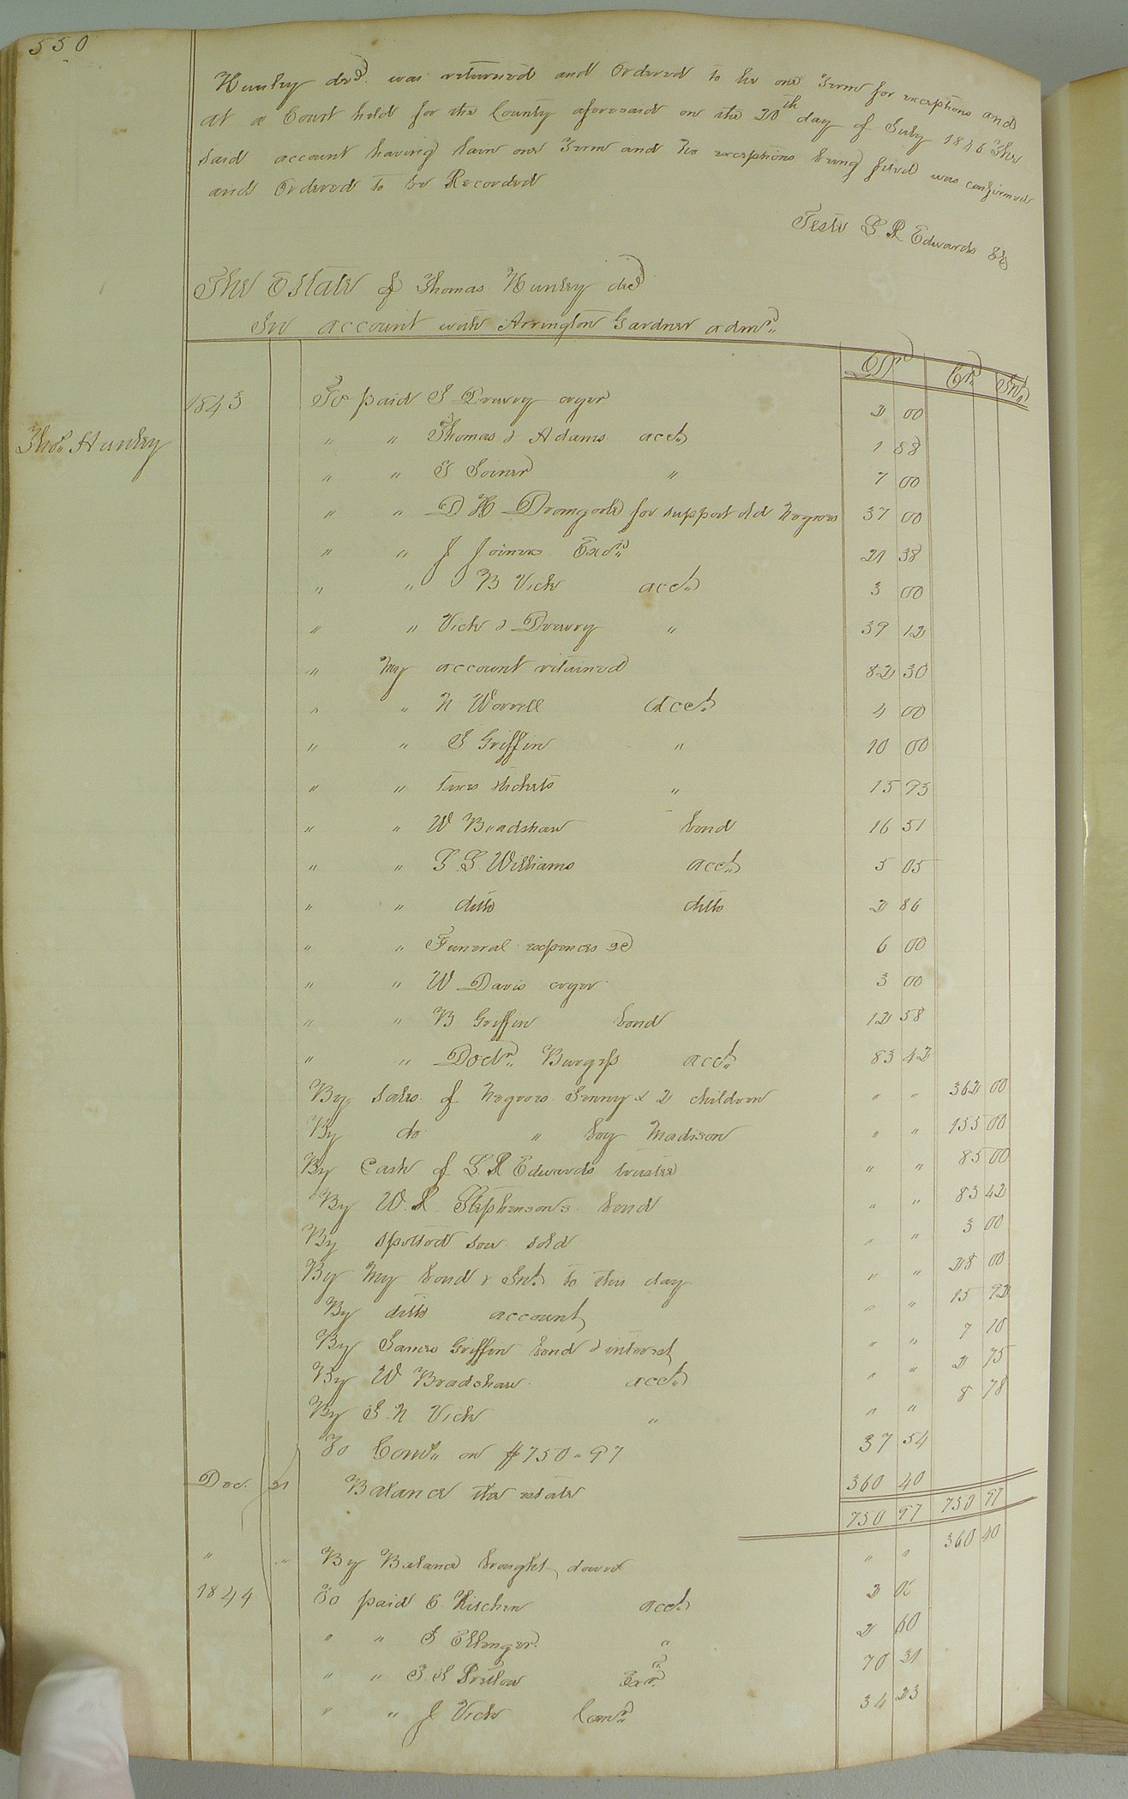 550
Hunley decd. was returned and Ordered to lie one Term for exceptions and
at a Court held for the County aforesaid on the 20th day of July 1846 The
said account having lain one Term and no exceptions being filed was confirmed
and Ordered to be Recorded
Teste L R Edwards
The Estate of Thomas Hunley decd
In account with Arrington Gardner admr.
Dr Cr Int.
1843 To paid S Drewry 2 00
Thos. Hunley
" " Thomas & Adams acct. 1 88
" " T Joiner " 7 00
" " D H Dromgoole for support old Negroes 37 00
" " J Joiners Exor. 21 38
" " B Vick acct. 3 00
" " Vick & Drewry " 39 12
" My account returned 82 30
" " N Worrell acct. 4 00
" " S Griffin " 10 00
" " taxes tickets " 15 95
" " W Bradshaw bond 16 51
" " T L Williams acct. 5 05
" " ditto ditto 2 86
" " Funeral expences &c 6 00
" " W Davis 3 00
" " B Griffin bond 12 58
" " Doctr. Burgess acct. 83 42
By Sales of Negroes Jenny & 2 children " " 362 00
By do " boy Madison " " 155 00
By Cash of L R Edwards trustee " " 85 00
By W. R. Stephenson's bond " " 83 42
By spotted sow sold " " 3 00
By My bond & Int. to this day " " 28 00
By ditto account " " 15 92
By James Griffin bond & interest " " 7 10
By W Bradshaw acct. " " 2 75
By S. N Vick " " " 8 78
To Coms. on $750-97 37 54
Dec. 31 Balance the estate 360 40
750 97 750 97
" " By Balance brought down " " 360 40
1844 To paid C. Kitchen acct. 2
" " S Ellenger " 2 60
" " T. S Pretlow 70 31
" " J Vick Coms. 34 23